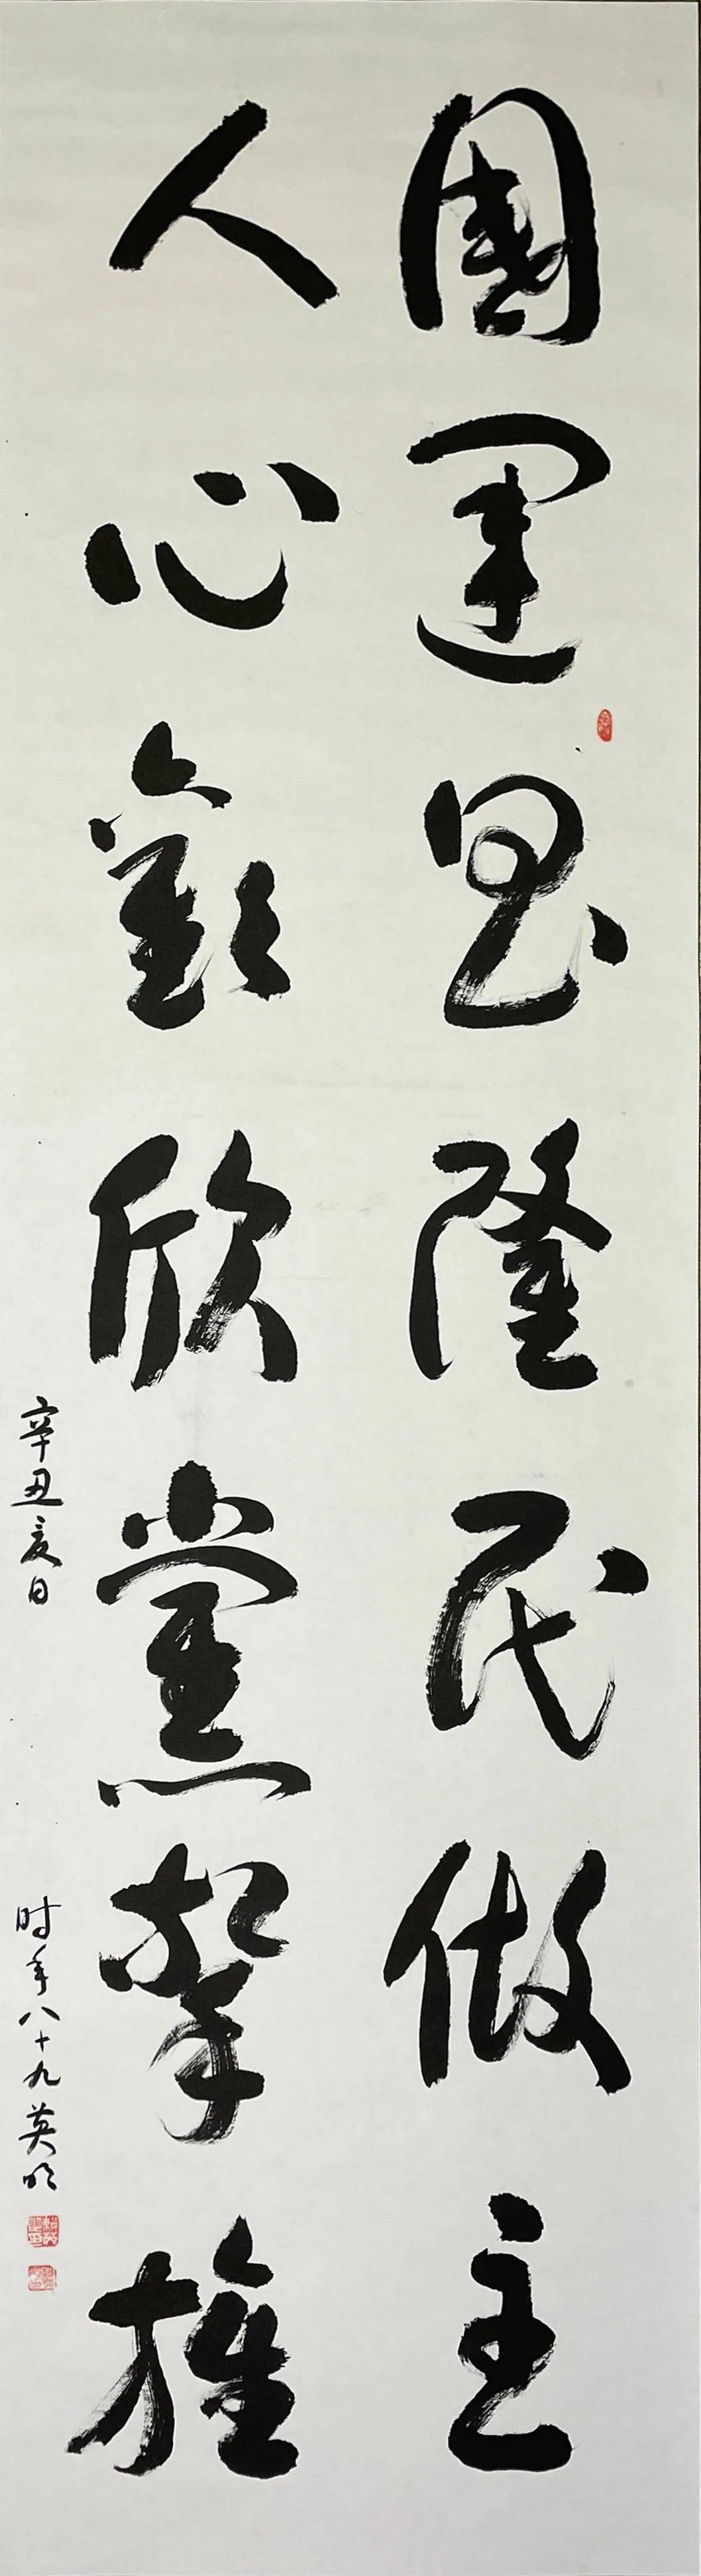 國運昌隆民做主
人心歡欣黨挈旌
辛丑夏日
时年八十九英明